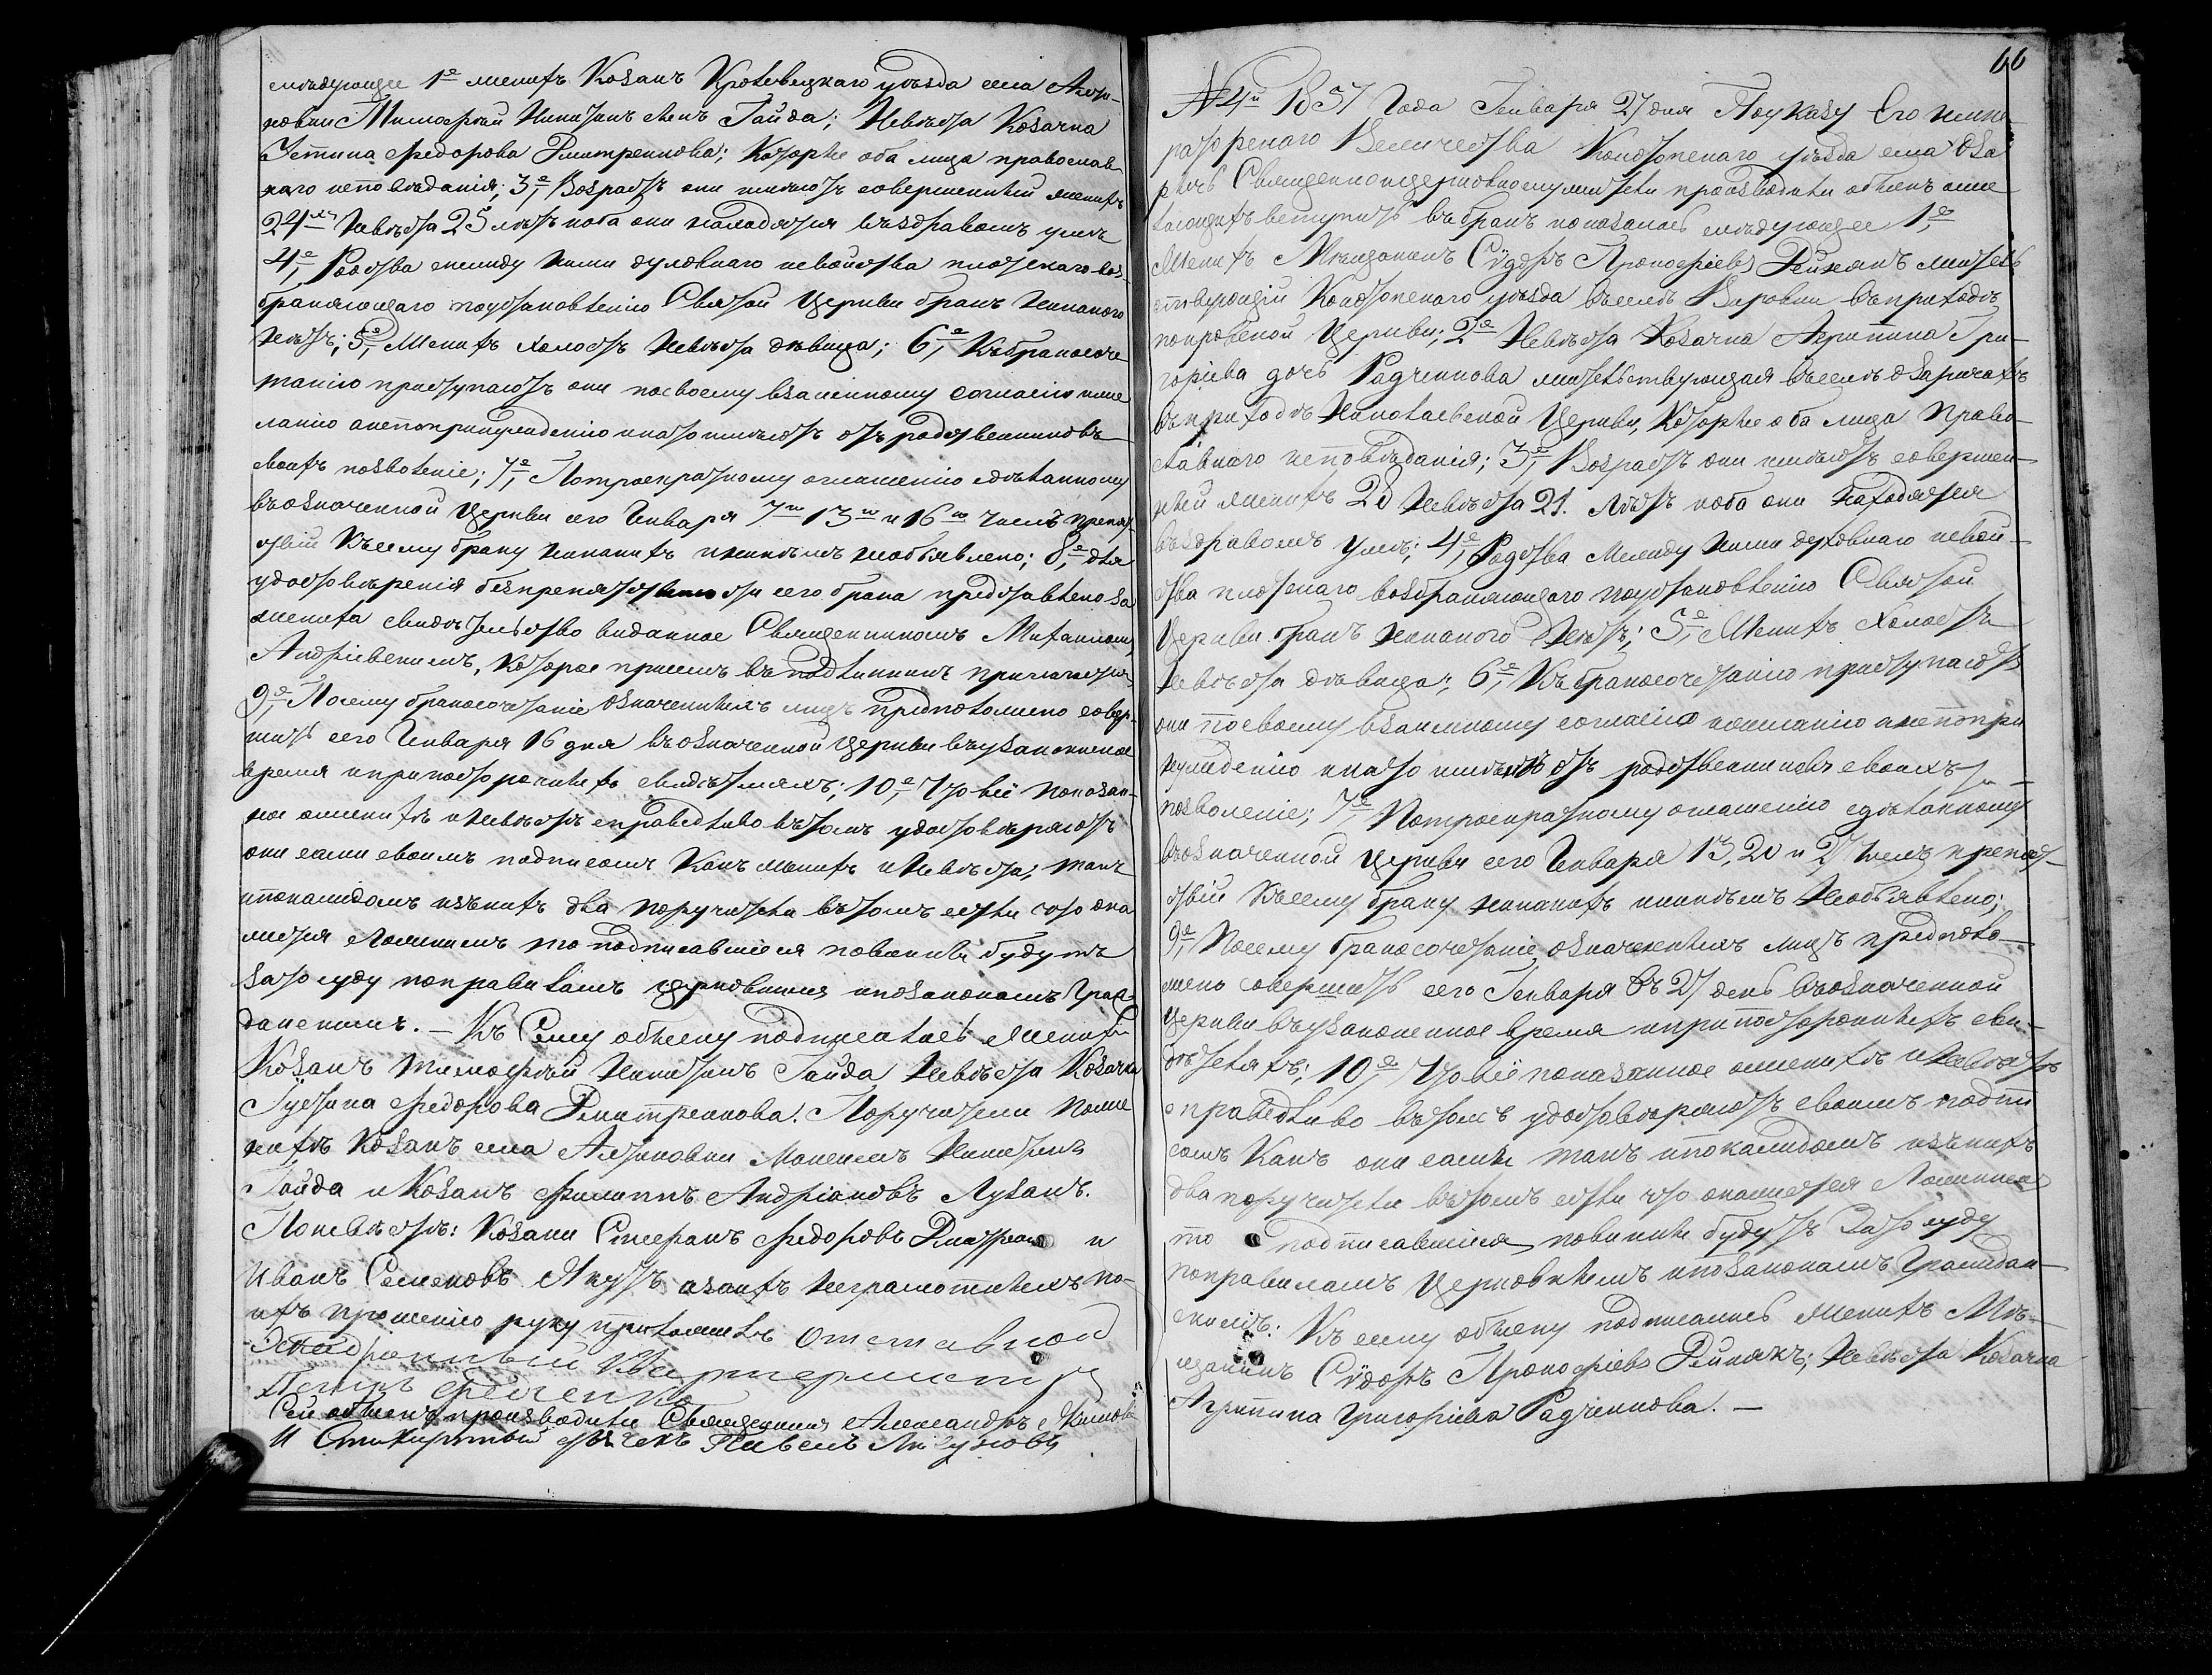 следующее 1е женихъ Козакъ Кролевецкаго уѣзда села
Тимофѣй Никитинъ сынъ Гайда; Невѣста Козачка
Устина Федорова Дмитренкова; Которые оба лица православ
наго исповѣданія; 3е, Возрастъ они имѣютъ совершенный женихъ
24 Невѣста 25 лѣтъ иоба они находятся въздравомъ умѣ
4е, Родства между ними духовнаго исвойства плотскаго воз
браняющаго поустановленію Святой Церкви бракъ никакого
нѣтъ; 5е, Женихъ холостъ Невѣста дѣвица; 6е, Къбракосоче
танію приступаютъ они посвоему взаимному согласію иже
ланію анепопринужденію инато имѣютъ отъ родственниковъ
своихъ позволеніе; 7е, Потроекратному оглашенію сдѣланному
въозначенной Церкви сего Генваря 7го 13го и 16го числъ препят
ствій Късему браку никакихъ иникѣмъ необъявлено; 8е, для
удостовѣренія безпрепятственности сего брака представлено за
жениха свидѣтельство виданное Священникомъ Михаиломъ
Андріевскимъ, Которое присемъ въподлинникъ прилагается
9е, Посему бракосочетаніе означенныхъ лицъ предположено совер
шить сего Генваря 16 дня въозначенной Церкви въузаконенное
время ипри постороннихъ свидѣтеляхъ; 10е, Что всё показан
ное оженихѣ иНевѣстѣ справедливо вътомъ удостовѣряютъ
они сами своимъ подписомъ Какъ женихъ иНевѣста, такъ
ипокаждомъ изънихъ два поручителя вътомъ если что ока
жется Ложнымъ то подписавшіеся повинны будутъ
зато суду поправиламъ церковнымъ ипозаконамъ Граж
данскимъ. — Къ Сему обыску подписались Женихъ
Козакъ Тимофѣй Никитинъ Гайда Невѣста Козачка
Густина Федорова Дмитренкова. Поручители поже
нихѣ Козакъ села Максимъ Никитинъ
Гайда иКозакъ Филиппъ Андріановъ Лузанъ.
Поневѣстѣ: Козаки Стефанъ Федоровъ и
Иванъ Семеновъ Якутъ азаихъ неграмотныхъ по
ихъ прошенію руку приложилъ Отставной
Квартермистръ
Сей обыскъ производили Священникъ Александръ
И Стихирный дьячекъ Павелъ
66
№ 4й 1857 Года Генваря 27 дня Поуказу Его Импе
раторскаго Величества Конотопскаго уѣзда села Оза
ричъ Священноицерковнослужители производили обыскъ оже
лающихъ вступить въбракъ ипоказалось слѣдующее 1е,
Женихъ Мѣщанинъ Сѵдоръ Прокофіевъ Рейнякъ житель
ствующій Конотопскаго уѣзда въселѣ Варовки въприходѣ
покровской Церкви; 2е Невѣста Козачка Акриппина Гри
горіева дочь Радченкова жительствующая въселѣ Озаричахъ
въприходѣ Николаевской Церкви, Которые оба лица Право
славнаго исповѣданія; 3е, Возрастъ они имѣютъ совершен
ный женихъ 20 Невѣста 21. Лѣтъ иоба они находятся
въздравомъ умѣ; 4е, Родства Между ними духовнаго исвой
ства плотскаго возбраняющаго поустановленію Святой
Церкви бракъ никакого Нѣтъ; 5е, Женихъ Холостъ
Невѣста дѣвица; 6е, Къбракосочетанію приступаютъ
они посвоему взаимному согласію ижеланію анепопри
нужденію инато имѣютъ отъ родственниковъ своихъ
позволеніе; 7е, Потроекратному оглашенію сдѣланному
въозначенной Церкви сего Генваря 13, 20 и 27 числъ препят
ствій Късему браку никакихъ иникѣмъ Необъявлено;
9е, Посему бракосочетаніе означенныхъ лицъ предполо
жено совершить сего Генваря въ 27 день въозначенной
Церкви въузаконенное время ипри постороннихъ сви
дѣтеляхъ; 10е, Что всё показанное оженихѣ иНевѣстѣ
справедливо вътомъ удостовѣряютъ своимъ подпи
сомъ Какъ они сами такъ ипокаждомъ изънихъ
два поручителя вътомъ если что окажется Ложнымъ
то подписавшіеся повинны будутъ Зато суду
поправиламъ Церковнымъ ипозаконамъ Граждан
скимъ. Къ сему обыску подписались женихъ Мѣ
щанинъ Сѵдоръ Прокофіевъ Рейнякъ; Невѣста Козачка
Агриппина Григоріева Радченкова. —